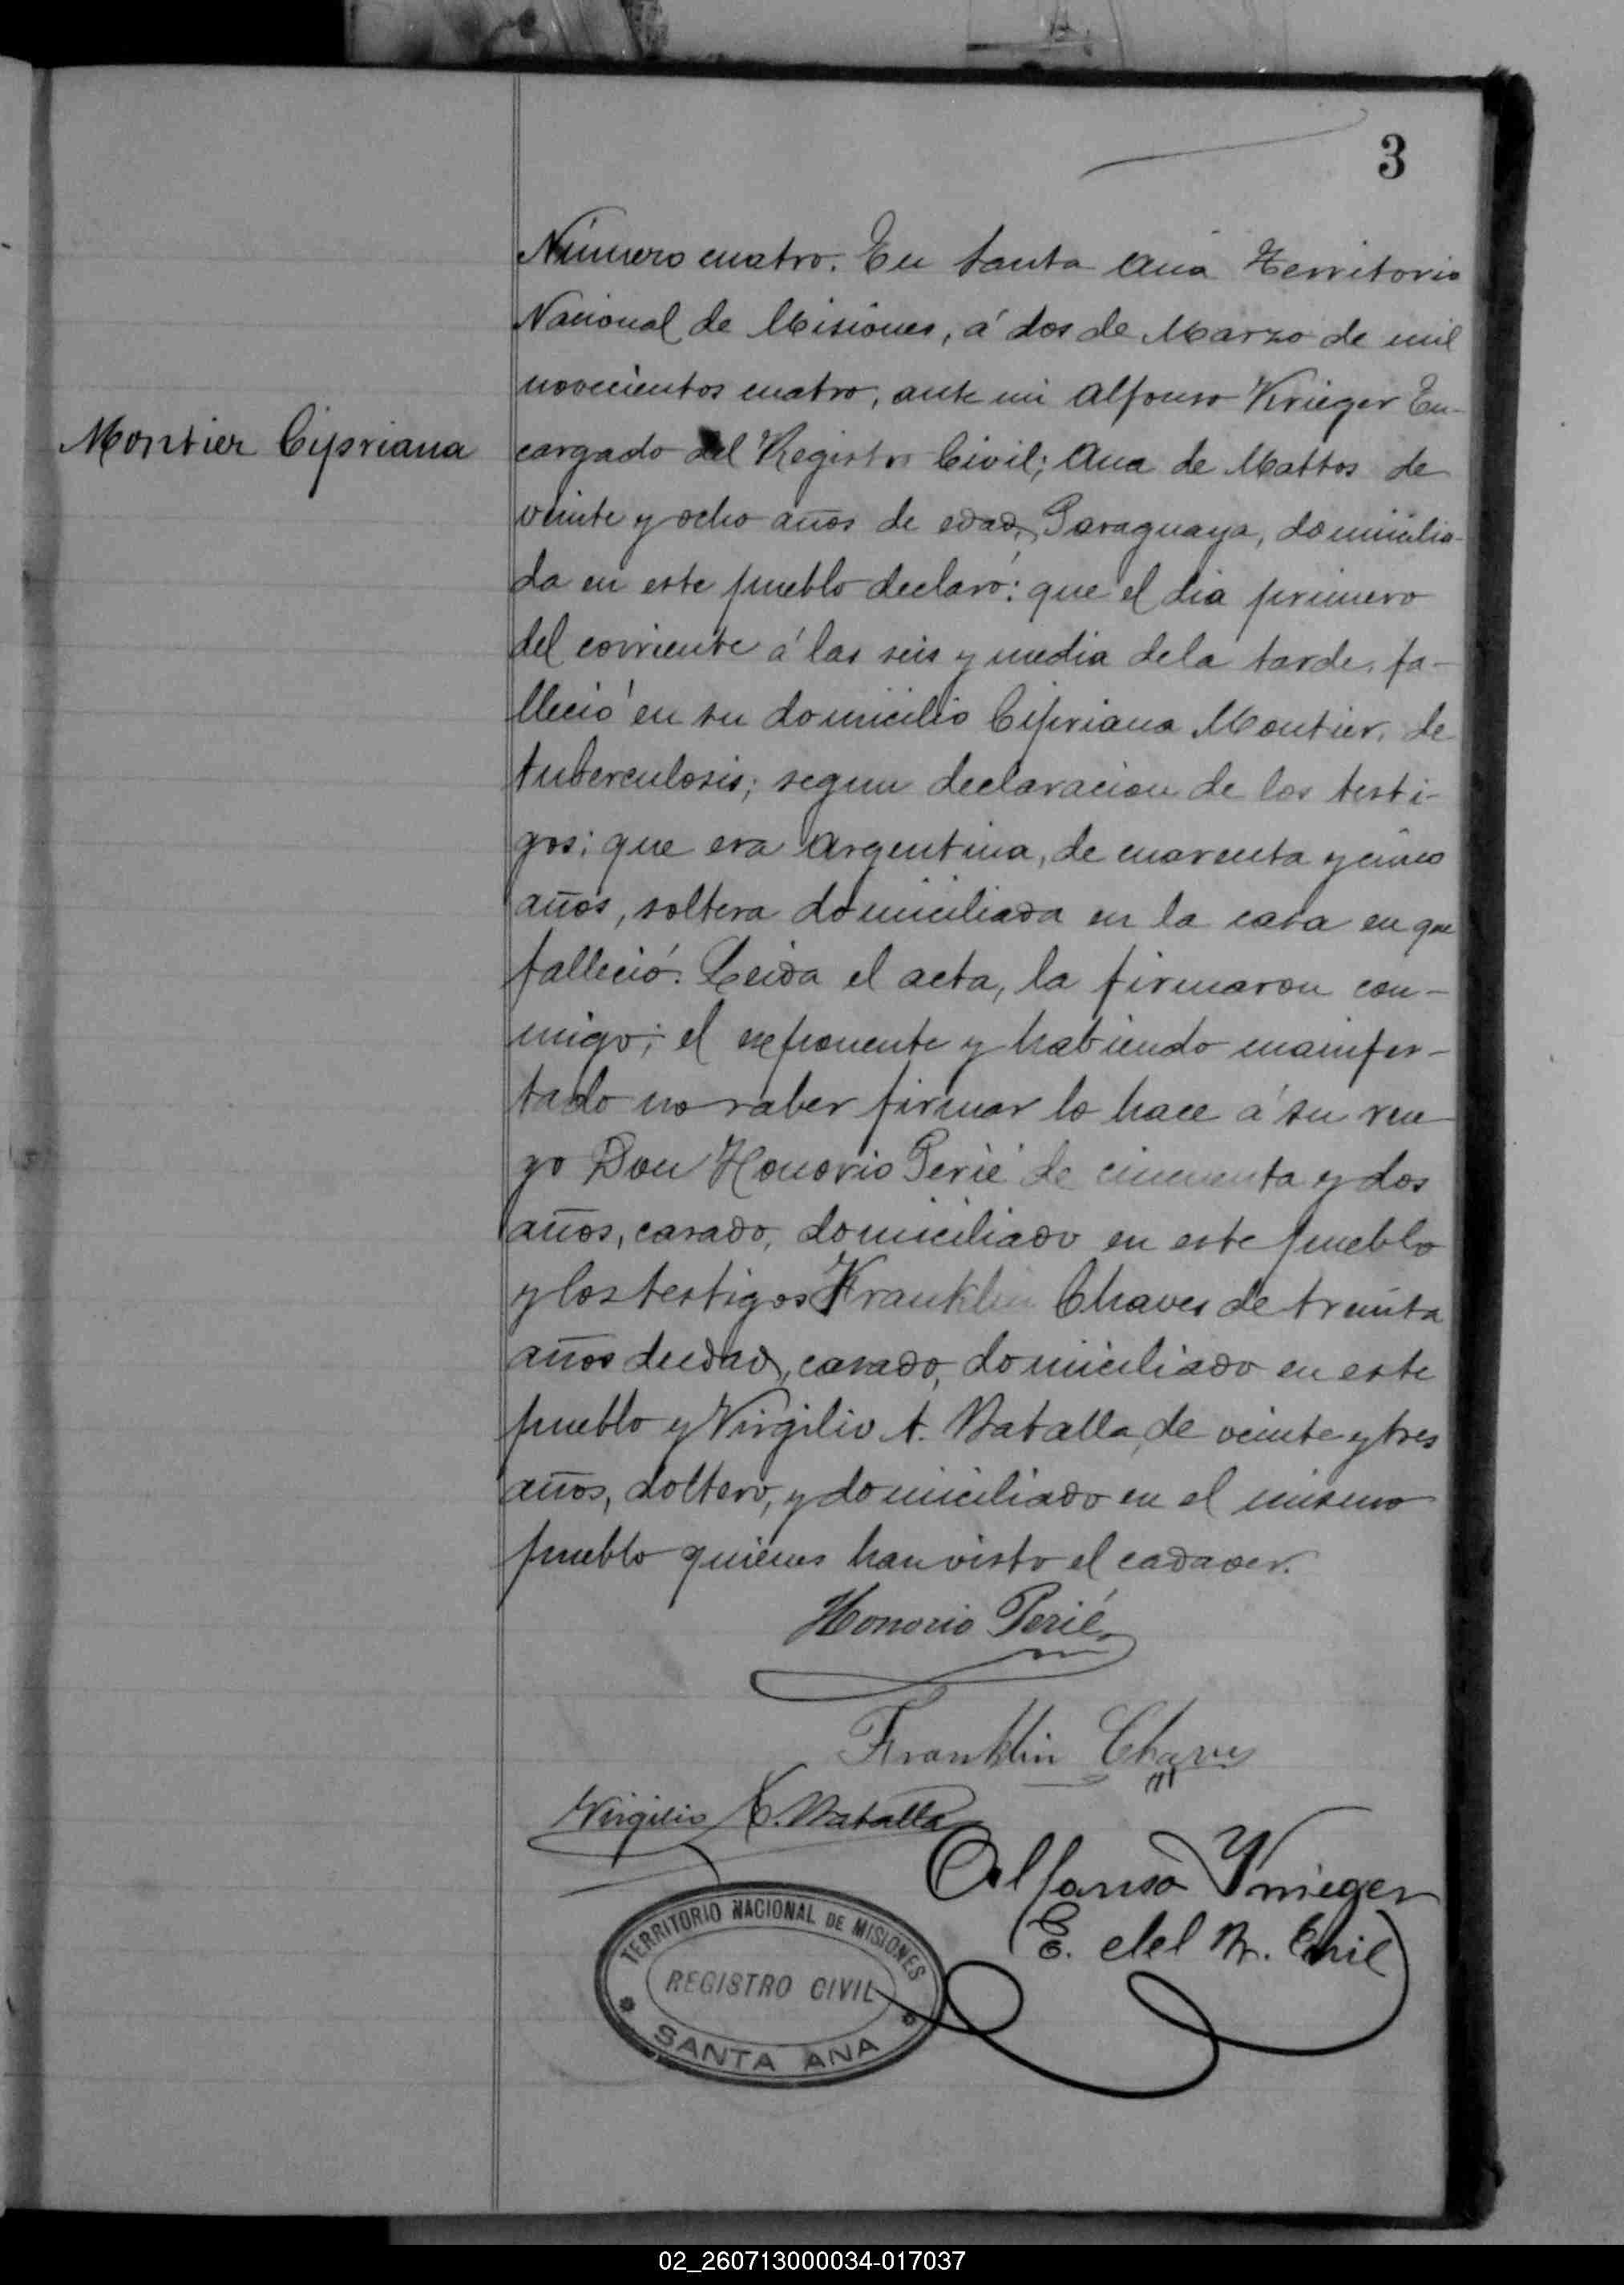 3
Número cuatro. En Santa Ana Territorio
Nacional de Misiones, á dos de Marzo de mil
novecientos cuatro, ante mi Alfonso Krieger En-
Montier Cipriana
cargado del Registro Civil; Ana de Mattos de
veinte y ocho años de edad, Paraguaya, domicilia-
da en este pueblo declaró: que el dia primero
del corriente á las seis y media dela tarde, fa-
lleció en su domicilio Cipriana Montier, de
tuberculosis; segun declaracion de los testi-
gos; que era Argentina, de cuarenta y cinco
años, soltera domiciliada en la casa en que
falleció. Leida el acta, la firmaron con-
migo; el exponente y habiendo manifes-
tado no saber firmar lo hace á su rue
go Don Honorio Perié de cincuenta y dos
años, casado, domiciliado en este pueblo
y los testigos Franklin Chaves de treinta
años de edad, casado, domiciliado en este
pueblo y Virgilio A. Batalla, de veinte y tres
años, soltero, y domiciliado en el mismo
pueblo quienes han visto el cadaver.
Honorio Perié
Franklin Chaves
Virgilio Batalla
Alfonso Krieger
E. del R. Civil
TERRITORIO NACIONAL DE MISIONES
REGISTRO CIVIL
SANTA ANA
02_260713000034-017037